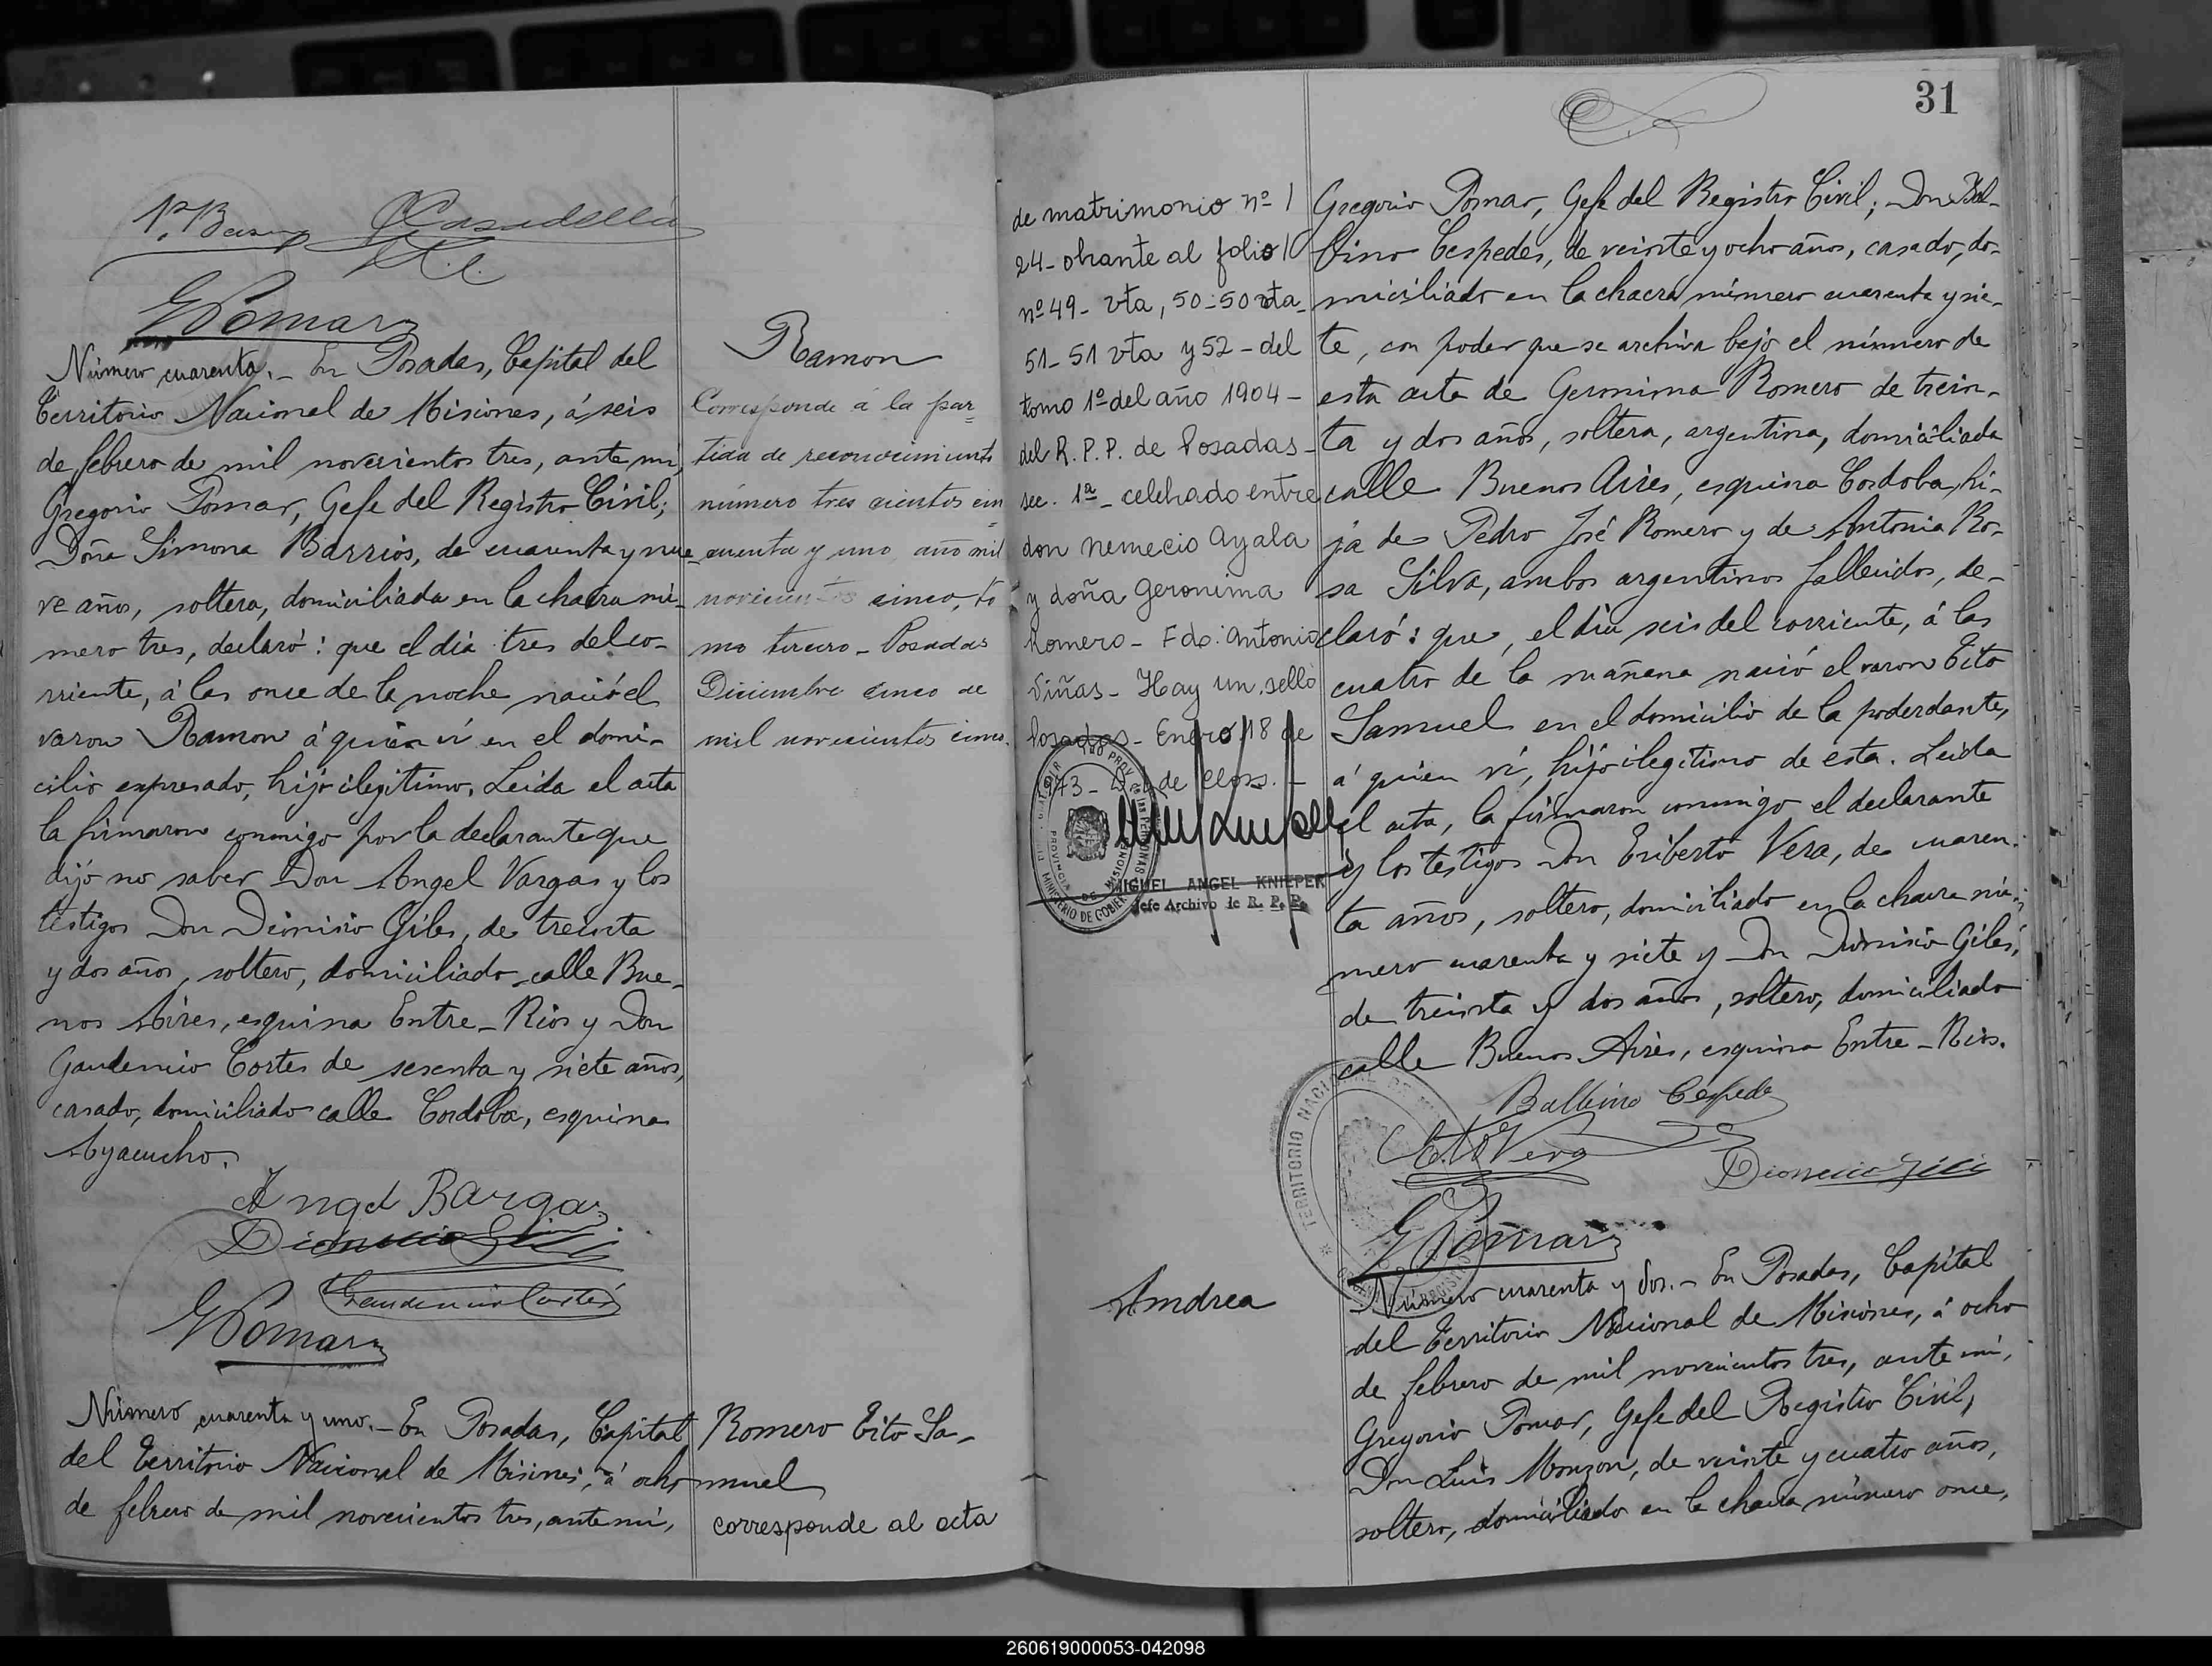 Pomar
Número cuarenta._ En Posadas, Capital del
Territorio Nacional de Misiones, á seis
de febrero de mil novecientos tres, ante mi,
Gregorio Pomar, Gefe del Registro Civil;
Doña Simona Barrios, de cuarenta y nue_
ve años, soltera, domiciliada en la chacra nú_
mero tres, declaró: que el día tres del co_
rriente, á las once de la noche nació el
varon Ramon á quien ví en el domi_
cilio expresado, hijo ilegitimo. Leida el acta
la firmaron conmigo por la declarante que
dijó no saber Don Angel Vargas y los
testigos Don Dionisio Giles, de treinta
y dos años, soltero, domiciliado calle Bue_
nos Aires, esquina Entre_Rios y Don
Gaudencio Cortes de sesenta y siete años,
casado, domiciliado calle Cordoba, esquina
Ayacucho.
Angel Bargas
Gaudencio Cortés
Pomar
Número cuarenta y uno._ En Posadas, Capital
del Territorio Nacional de Misiones, á ocho
de febrero de mil novecientos tres, ante mi,
Ramon
Corresponde á la par=
tida de reconocimiento
número tres cientos cin=
cuenta y uno, año mil
novecientos cinco, to
mo tercero _ Posadas
Diciembre cinco de
mil novecientos cinco.
Romero Tito Sa_
muel
corresponde al acta
de matrimonio nº
24_ obrante al folio
nº 49_ vta, 50_50 vta_
51_51 vta y 52_ del
tomo 1º del año 1904_
del R. P. P. de Posadas_
sec. 1ª_ celebrado entre
don Nemecio Ayala
y doña Geronima
Romero_ Fdo: Antonio
Viñas_ Hay un sello
Posadas_ Enero 18 de
MIGUEL ANGEL KNIEPER
Jefe Archivo de R. P. P.
Andrea
31
Gregorio Pomar, Gefe del Registro Civil; Don Bal_
bino Cespedes, de veinte y ocho años, casado, do_
miciliado en la chacra número cuarenta y sie_
te, con poder que se archiva bajo el número de
esta acta de Geronima Romero de trein_
ta y dos años, soltera, argentina, domiciliada
calle Buenos Aires, esquina Cordoba, hi_
ja de Pedro José Romero y de Antonia Ro_
sa Silva, ambos argentinos fallecidos, de_
claró: que, el día seis del corriente, á las
cuatro de la mañana nació el varon Tito
Samuel en el domicilio de la poderdante,
á quien ví, hijo ilegitimo de esta. Leida
el acta, la firmaron conmigo el declarante
y los testigos Don Eriberto Vera, de cuaren_
ta años, soltero, domiciliado en la chacra nú_
mero cuarenta y siete y Don Dionisio Giles,
de treinta y dos años, soltero, domiciliado
calle Buenos Aires, esquina Entre_Rios.
Balbino Cespede
Vera
Pomar
Número cuarenta y dos._ En Posadas, Capital
del Territorio Nacional de Misiones, á ocho
de febrero de mil novecientos tres, ante mi,
Gregorio Pomar, Gefe del Registro Civil,
Don Luis Monzon, de veinte y cuatro años,
soltero, domiciliado en la chacra número once,
260619000053-042098